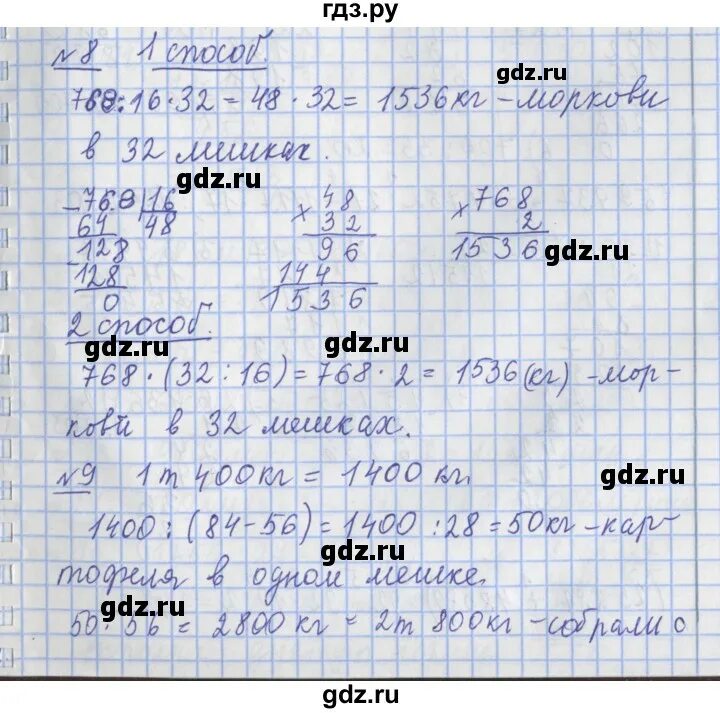 гдз.ру
№8 1 способ.
gdz.ru
768:16·32=48·32=1536кг-моркови
в 32 мешках.
gdz.ru
768 16 48 768
64 48 × 32 × 2
128 96 1536
gdz.ru
128 144
0 1536
2 способ.
gdz.ru
gdz.ru
768·(32:16)=768·2=1536(кг)-мор-
кови в 32 мешках.
№9 1т 400кг=1400кг.
gdz.ru
1400:(84-56)=1400:28=50кг-кар-
gdz.ru
тофеля в одном мешке.
gdz.ru
50·56=2800кг=2т 800кг-собрали с
gdz.ru
gdz.ru